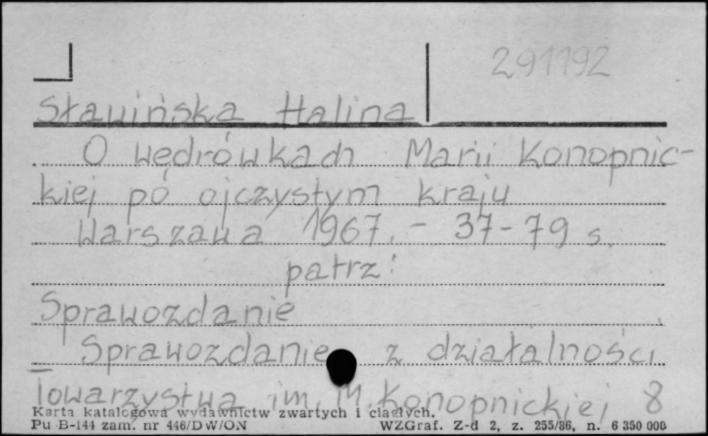 291192
Sławińska Halina
O wędrówkach Marii Konopnic-
kiej po ojczystym kraju
Warszawa 1967. - 37-79 s.
patrz:
Sprawozdanie
Sprawozdanie z działalności
Towarzystwa im. M. Konopnickiej 8
Karta katalogowa wydawnictw zwartych i ciągłych.
Pu B-144 zam. nr 446/DW/ON WZGraf. Z-d 2, z. 255/86, n. 6 350 000